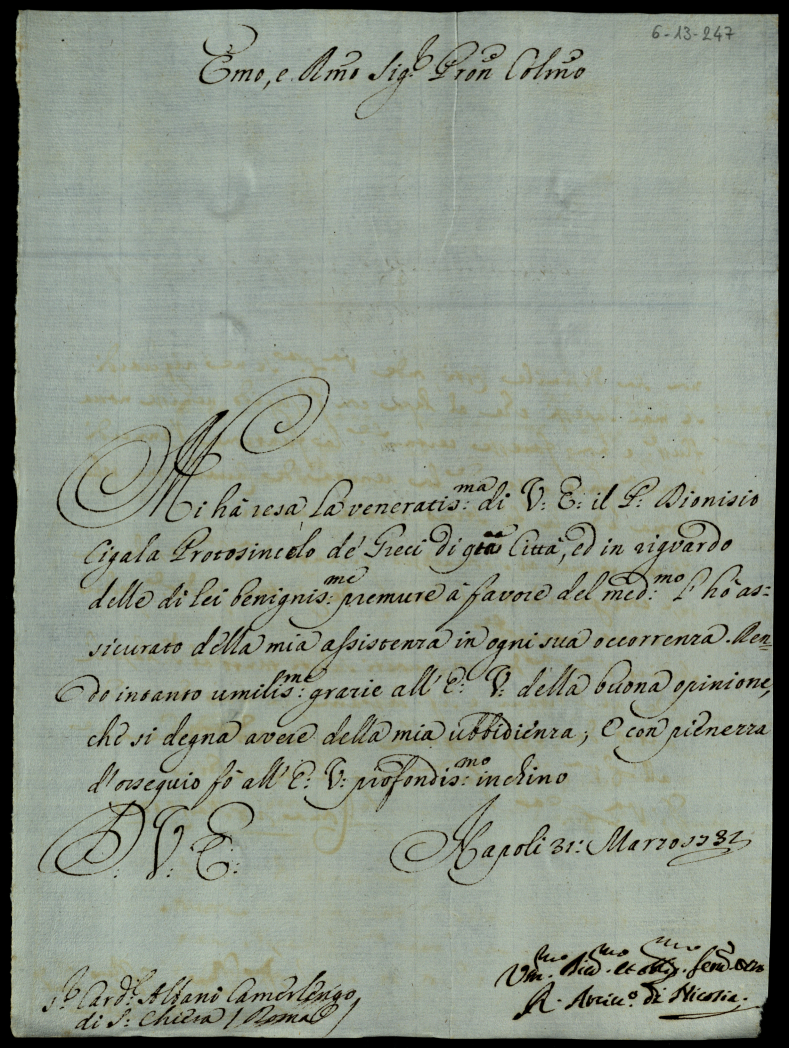 6-13-247
Emo, e Rmo Sig.r Pron Colmo
Mi hà resa la veneratis:ma di V: E: il P: Dionisio
Cigala Protosincelo de' Greci di qta Città, ed in riguardo
delle di lei benignis:me premure à favore del med:mo l'hò as=
sicurato della mia assistenza in ogni sua occorrenza. Ren=
do intanto umilis:me grazie all'E: V: della buona opinione,
che si degna avere della mia ubbidienza; E con pienezza
d'ossequio fò all'E: V: profondis:mo inchino
D: V: E:
Napoli 31: Marzo 1732
S.r Card.l Albani Camerlengo
di S: Chiesa / Roma /
Um.mo Div.mo et obbl.mo Serv.
R. Arciv.o di Nicosia.